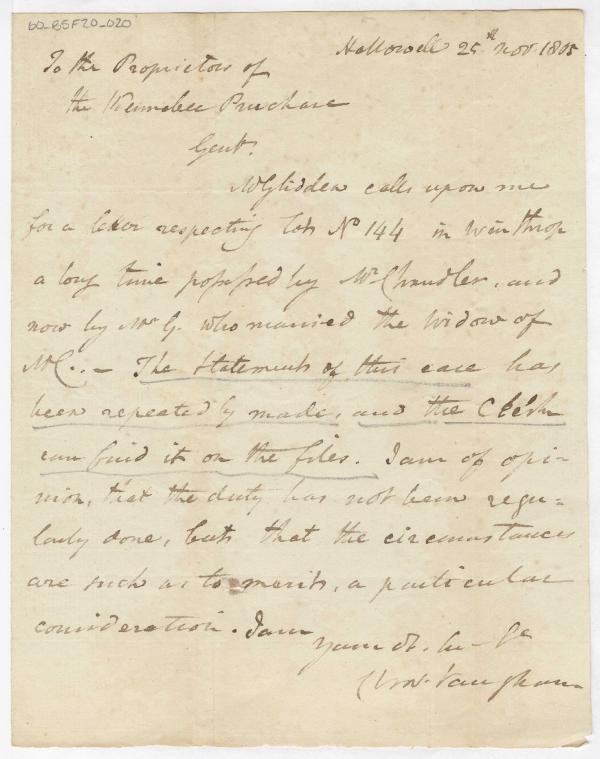 60_BSF20_020
Hallowell 25th Nov. 1805
To the Proprietors of
the Kennebec Purchase
Gent.
Mr Glidden calls upon me
for a letter respecting Lot No 144 in Winthrop
a long time possessed by Mr Chandler, and
now by Mr G. who married the Widow of
Mr C.. – The Statement of this case has
been repeatedly made, and the Clerk
can find it on the files. I am of opi-
nion, that the duty has not been regu-
larly done, but that the circumstances
are such as to merit, a particular
consideration. I am
Your ob.
Vaughan